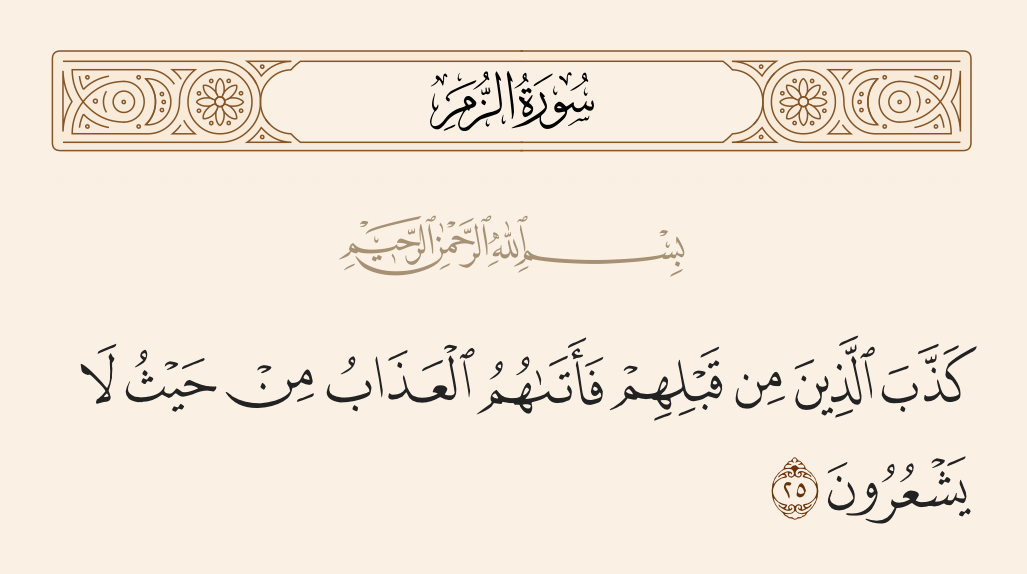 سُورَةُ الزُّمَرِ
بِسْمِ ٱللَّهِ ٱلرَّحْمَٰنِ ٱلرَّحِيمِ
كَذَّبَ ٱلَّذِينَ مِن قَبْلِهِمْ فَأَتَىٰهُمُ ٱلْعَذَابُ مِنْ حَيْثُ لَا
يَشْعُرُونَ ٢٥